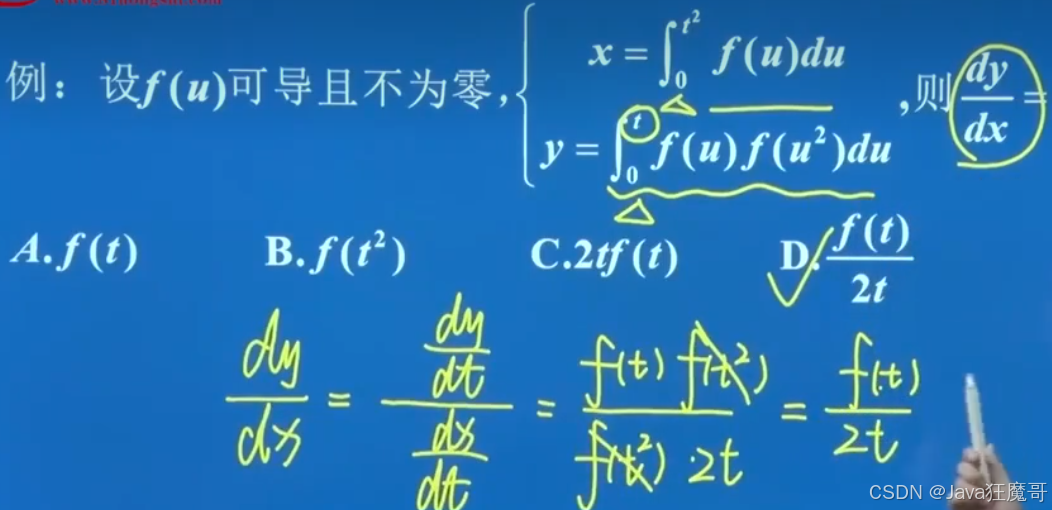 例：设f(u)可导且不为零,{ x = ∫₀^{t²} f(u)du
y = ∫₀^{t} f(u)f(u²)du ,则 dy/dx =
A.f(t) B.f(t²) C.2tf(t) D.f(t)/2t
dy/dx = (dy/dt)/(dx/dt) = f(t)f(t²)/f(t²)·2t = f(t)/2t
CSDN @Java狂魔哥